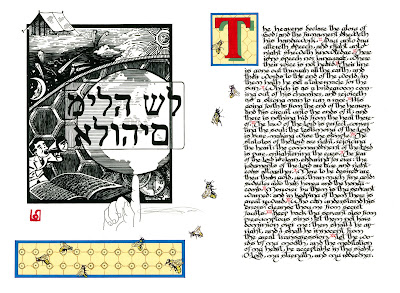 לש הלימ
םיהולא
The heavens declare the glory of
God; and the firmament sheweth
his handywork. Day unto day
uttereth speech, and night unto
night sheweth knowledge. There
is no speech nor language, where
their voice is not heard. Their line
is gone out through all the earth, and
their words to the end of the world. In
them hath he set a tabernacle for the
sun, Which is as a bridegroom coming
out of his chamber, and rejoiceth
as a strong man to run a race. His
going forth is from the end of the heaven,
and his circuit unto the ends of it: and
there is nothing hid from the heat thereof.
The law of the Lord is perfect, converting
the soul: the testimony of the Lord
is sure, making wise the simple. The
statutes of the Lord are right, rejoicing
the heart: the commandment of the Lord
is pure, enlightening the eyes. The fear
of the Lord is clean, enduring for ever: the
judgments of the Lord are true and righteous
altogether. More to be desired are
they than gold, yea, than much fine gold:
sweeter also than honey and the honeycomb.
Moreover by them is thy servant
warned: and in keeping of them there is
great reward. Who can understand his
errors? cleanse thou me from secret
faults. Keep back thy servant also from
presumptuous sins; let them not have
dominion over me: then shall I be upright,
and I shall be innocent from
the great transgression. Let the words
of my mouth, and the meditation
of my heart, be acceptable in thy sight,
O Lord, my strength, and my redeemer.